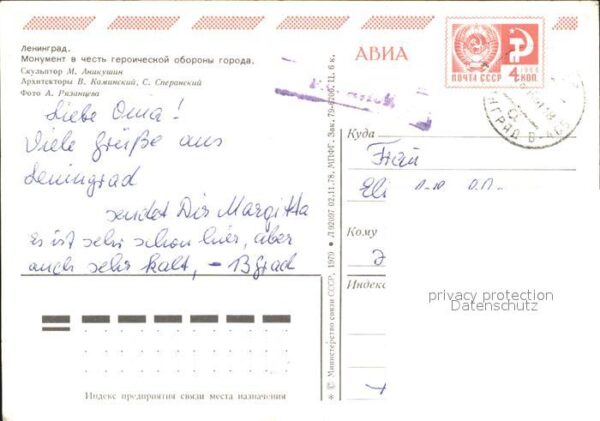 Ленинград.
Монумент в честь героической обороны города.
Скульптор М. Аникушин
Архитекторы В. Каменский, С. Сперанский
Фото А. Рязанцева
Liebe Oma!
Viele Grüße aus
Leningrad
sendet Dir Margitta
Es ist sehr schön hier, aber
auch sehr kalt, – 13 Grad
АВИА
ПОЧТА СССР 4 КОП.
1966
Куда
Frau
Eli
Кому
Индекс
privacy protection
Datenschutz
* © Министерство связи СССР, 1979 * Л 92097 02.11.78. МПФГ. Зак. 79-6700. Ц. 6 к.
Индекс предприятия связи места назначения